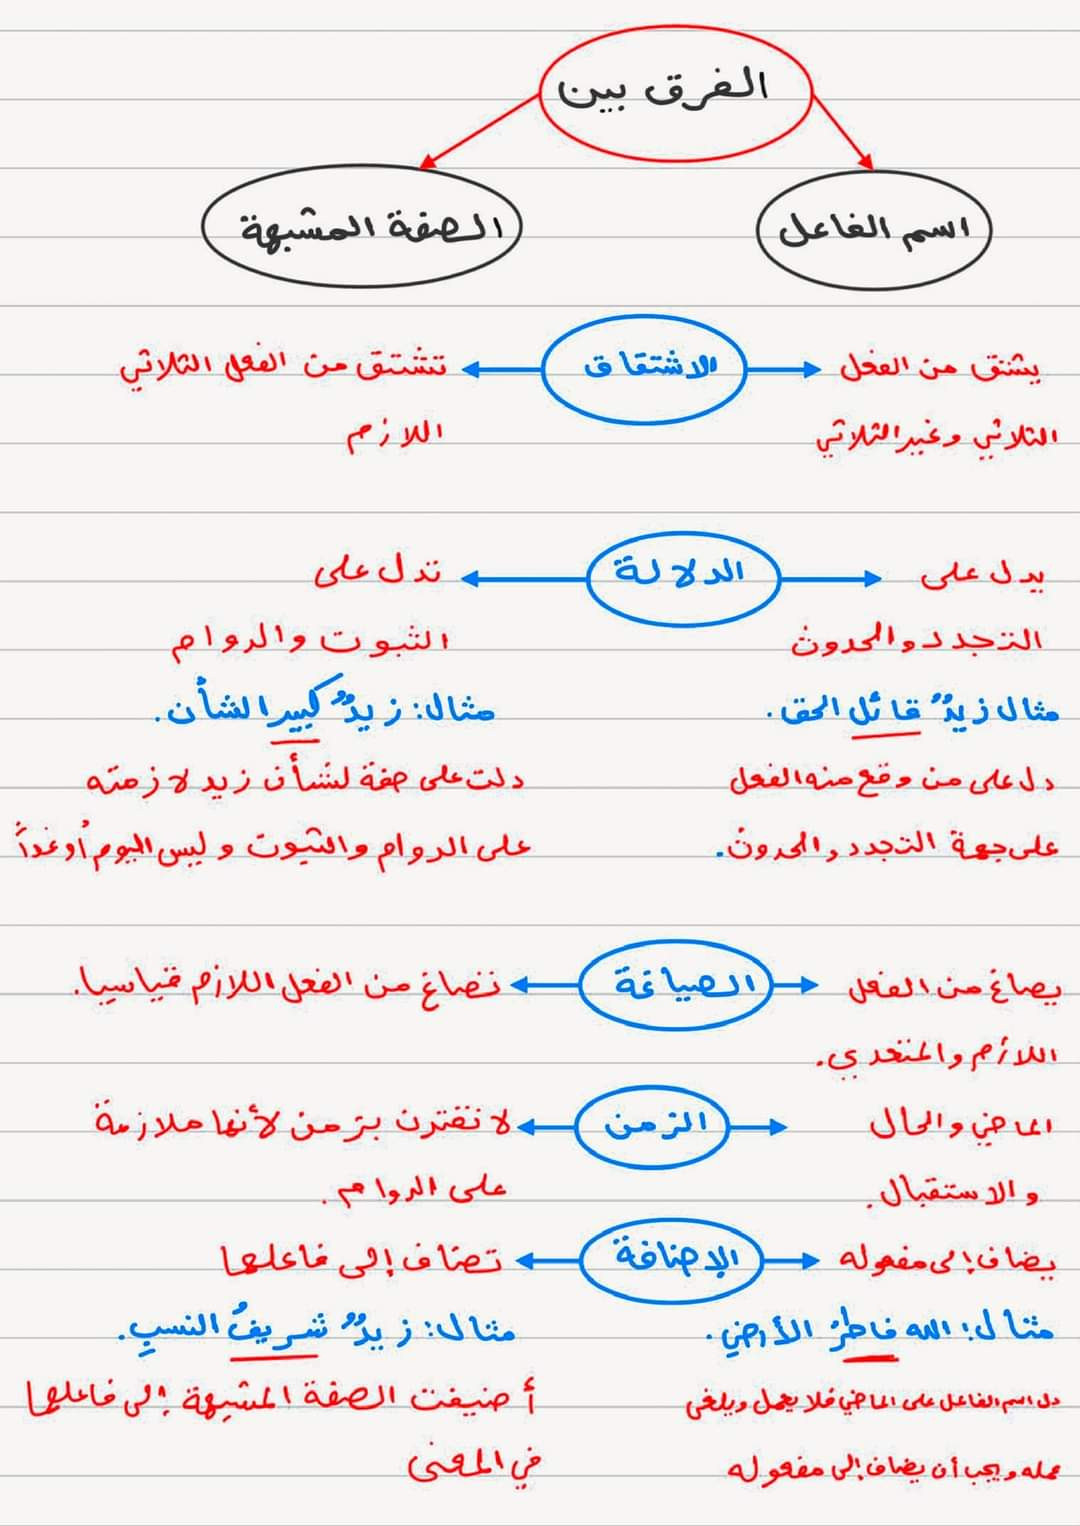 الفرق بين
اسم الفاعل
الصفة المشبهة
الاشتقاق
يشتق من الفعل
الثلاثي وغير الثلاثي
تشتق من الفعل الثلاثي
اللازم
الدلالة
يدل على
التجدد والحدوث
مثال زيدٌ قائل الحق.
دل على من وقع منه الفعل
على جهة التجدد والحدوث.
تدل على
الثبوت والدوام
مثال: زيدٌ كبير الشأن.
دلت على صفة لشأن زيد لازمته
على الدوام والثبوت وليس اليوم أو غداً
الصياغة
يصاغ من الفعل
اللازم والمتعدي.
تصاغ من الفعل اللازم قياسيا.
الزمن
الماضي والحال
والاستقبال.
لا تقترن بزمن لأنها ملازمة
على الدوام.
الإضافة
يضاف إلى مفعوله
مثال: الله فاطرُ الأرضِ.
دل اسم الفاعل على الماضي فلا يعمل ويلغى
عمله ويجب أن يضاف إلى مفعوله
تضاف إلى فاعلها
مثال: زيدٌ شريفُ النسبِ.
أضيفت الصفة المشبهة إلى فاعلها
في المعنى